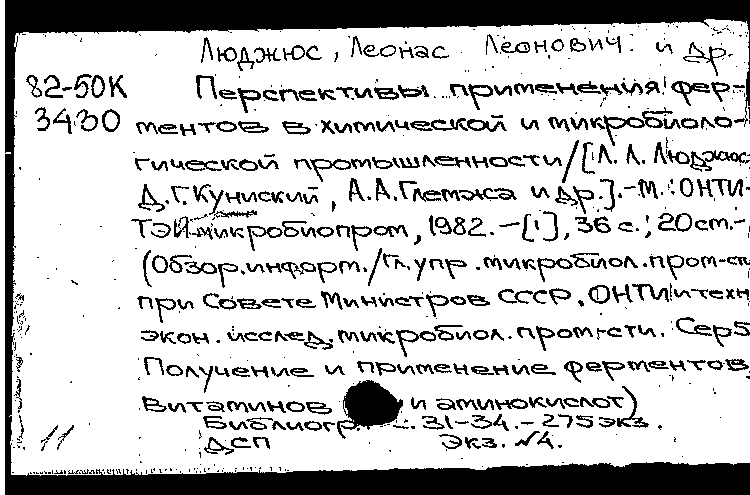 Люджюс, Леонас Леонович и др.
82-50К Перспективы применения фер-
3430 ментов в химической и микробиоло-
гической промышленности/[Л.Л. Люджюс
Д.Г. Куниский, А.А. Глемжа и др.].-М.: ОНТИ-
ТЭИмикробиопром, 1982.-[1], 36 с.; 20см.-
(Обзор.информ./Гл.упр.микробиол.пром-сти
при Совете Министров СССР, ОНТИ и техн
экон.исслед.микробиол.пром-сти. Сер5
Получение и применение ферментов,
витаминов и аминокислот)
Библиогр. с. 31-34.-275экз.
11 ДСП Экз. №4.